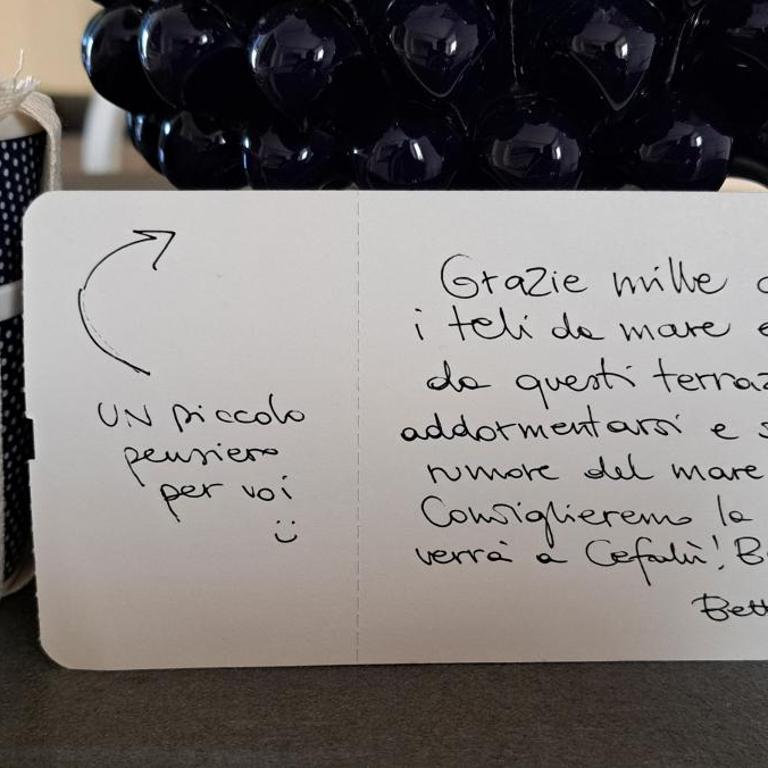 UN piccolo
pensiero
per voi
Grazie mille
i teli da mare e
da questi
addormentarsi e
rumore del mare
Consiglieremo la
verrà a Cefalù!